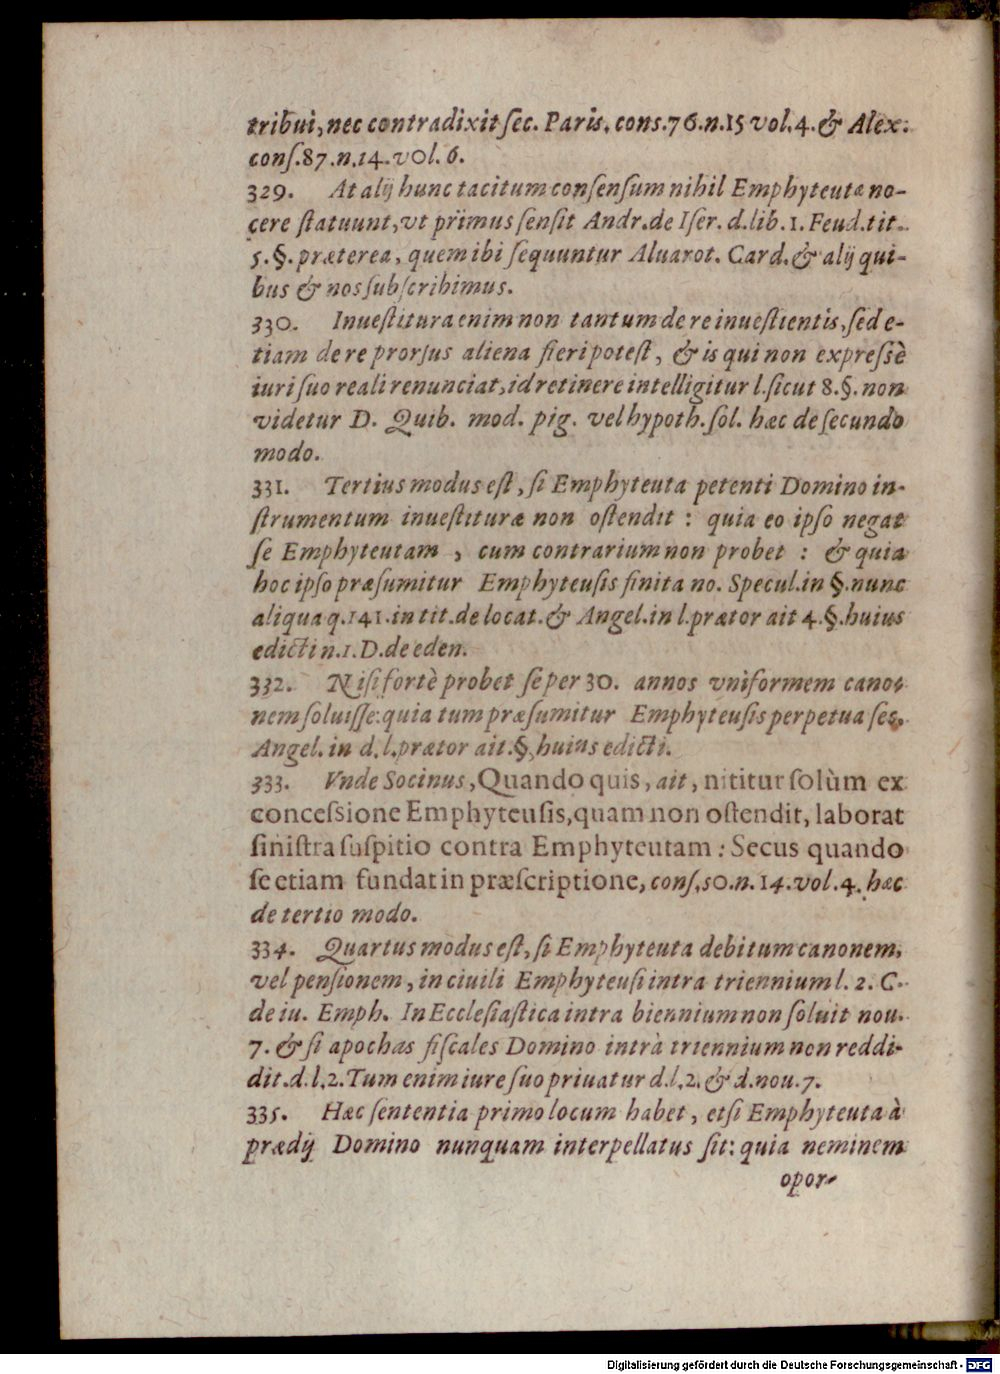 tribui, nec contradixit ſec. Paris. cons.76.n.15 vol.4. & Alex.
conſ.87.n.14.vol.6.
329. At alij hunc tacitum conſenſum nihil Emphyteutæ no-
cere ſtatuunt, vt primus ſenſit Andr. de Iſer. d. lib. 1. Feud. tit.
5.§. præterea, quem ibi ſequuntur Aluarot. Card. & alij qui-
bus & nos ſubſcribimus.
330. Inueſtitura enim non tantum de re inueſtientis, ſed e-
tiam de re prorſus aliena fieri poteſt, & is qui non expreſsè
iuri ſuo reali renunciat, id retinere intelligitur l. ſicut 8.§. non
videtur D. Quib. mod. pig. vel hypoth. ſol. hæc de ſecundo
modo.
331. Tertius modus eſt, ſi Emphyteuta petenti Domino in-
ſtrumentum inueſtituræ non oſtendit : quia eo ipſo negat
ſe Emphyteutam , cum contrarium non probet : & quia
hoc ipſo præſumitur Emphyteuſis finita no. Specul. in §. nunc
aliqua q.141. in tit. de locat. & Angel. in l. prætor ait 4.§. huius
edicti n.1.D. de eden.
332. Niſi fortè probet ſe per 30. annos vniformem cano-
nem ſoluiſſe: quia tum præſumitur Emphyteuſis perpetua ſec.
Angel. in d. l. prætor ait.§. huius edicti.
333. Vnde Socinus, Quando quis, ait, nititur ſolùm ex
conceſsione Emphyteuſis, quam non oſtendit, laborat
ſiniſtra ſuſpitio contra Emphyteutam : Secus quando
ſe etiam fundat in præſcriptione, conſ. 50.n.14.vol.4. hæc
de tertio modo.
334. Quartus modus eſt, ſi Emphyteuta debitum canonem,
vel penſionem, in ciuili Emphyteuſi intra triennium l. 2. C.
de iu. Emph. In Eccleſiaſtica intra biennium non ſoluit nou.
7. & ſi apochas fiſcales Domino intrà triennium non reddi-
dit. d. l. 2. Tum enim iure ſuo priuatur d. l. 2. & d. nou. 7.
335. Hæc ſententia primo locum habet, etſi Emphyteuta à
prædij Domino nunquam interpellatus ſit: quia neminem
opor-
Digitalisierung gefördert durch die Deutsche Forschungsgemeinschaft - DFG